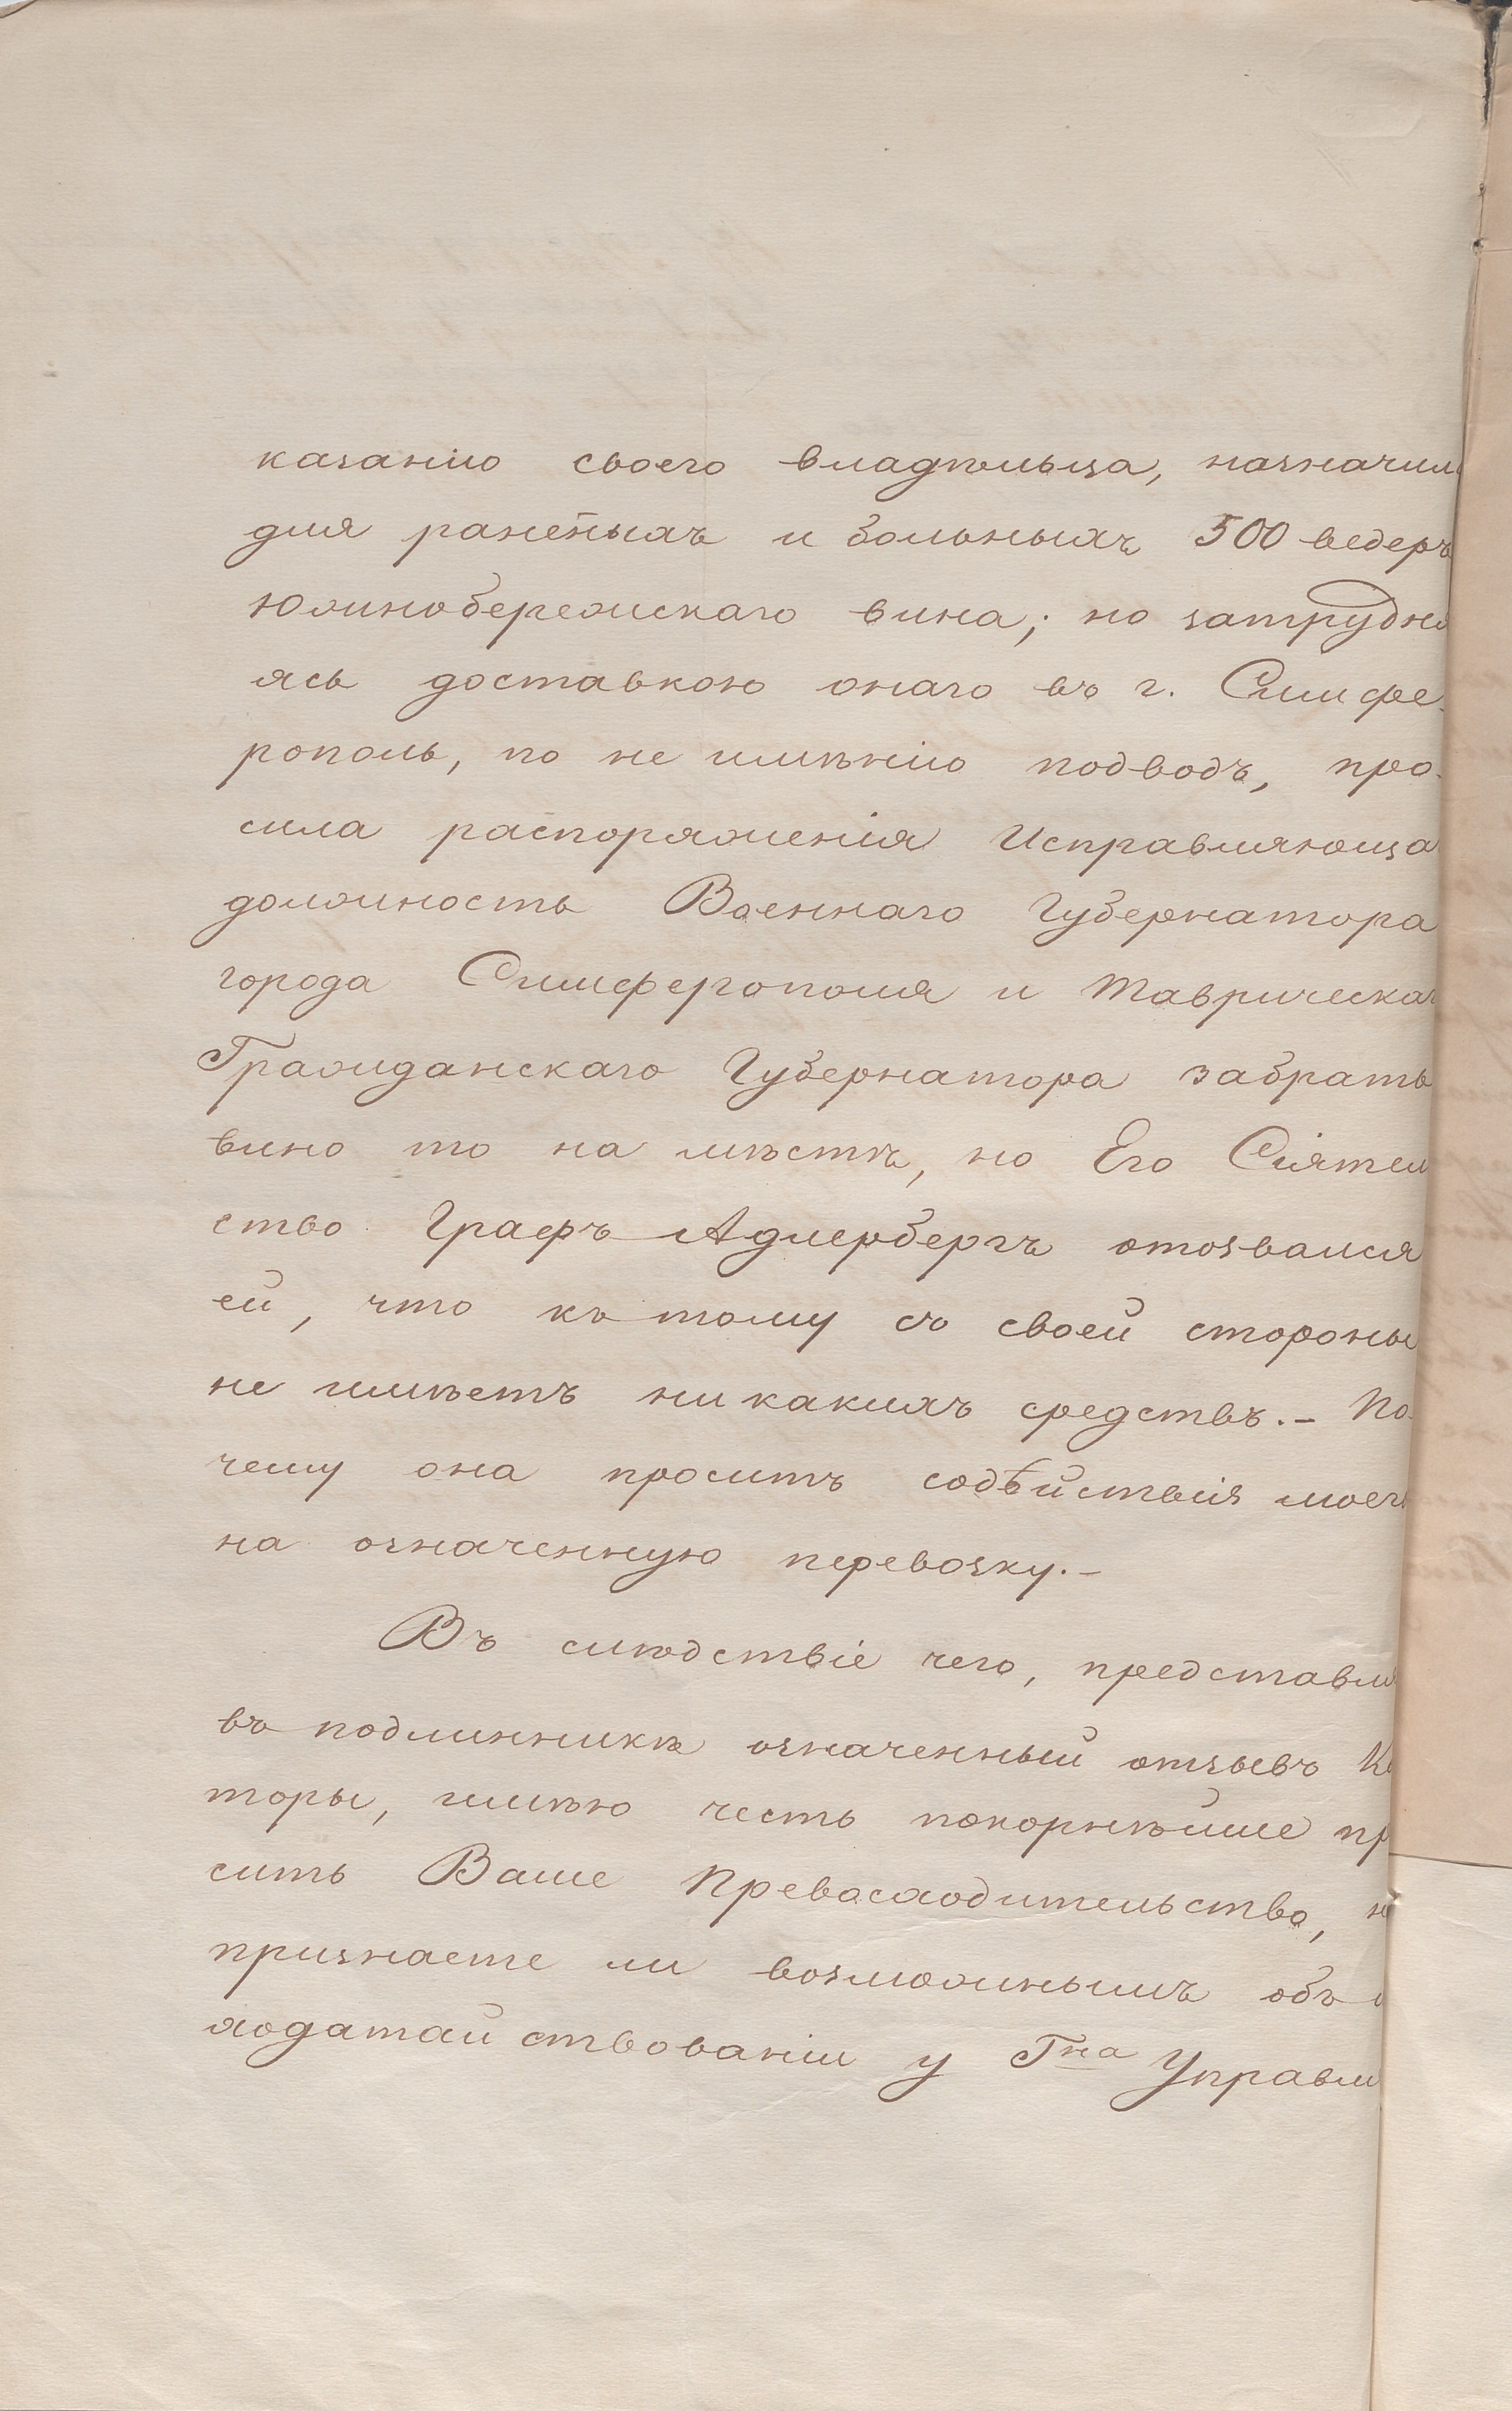 казанію своего владѣльца, назначил
для раненыхъ и больныхъ 500 ведеръ
Южнобережскаго вина; но затрудня
ясь доставкою онаго въ г. Симфе-
рополь, по не имѣнію подводъ, про-
сила распоряженія Исправляюща
должность Военнаго Губернатора
города Симферополя и Таврическаг
Гражданскаго Губернатора забрать
вино то на мѣстѣ, но Его Сіятел
ство Графъ Адлербергъ отозвался
ей, что къ тому съ своей стороны
не имѣетъ ни какихъ средствъ.- По-
чему она проситъ содѣйствія моего
на означенную перевозку.-
Въ слѣдствіе чего, представля
въ подлинникѣ означенный отзывъ Ко
торы, имѣю честь покорнѣйше пр
сить Ваше Превосходительство, н
признаете ли возможнымъ объ
ходатайствованіи у Гна Управл